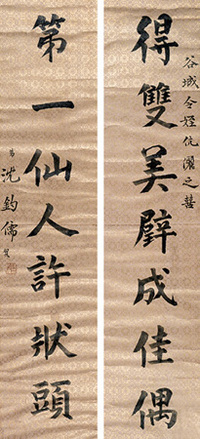 谷城令姪伉儷之囍
得雙美璧成佳偶
第一仙人許狀頭
沈鈞儒